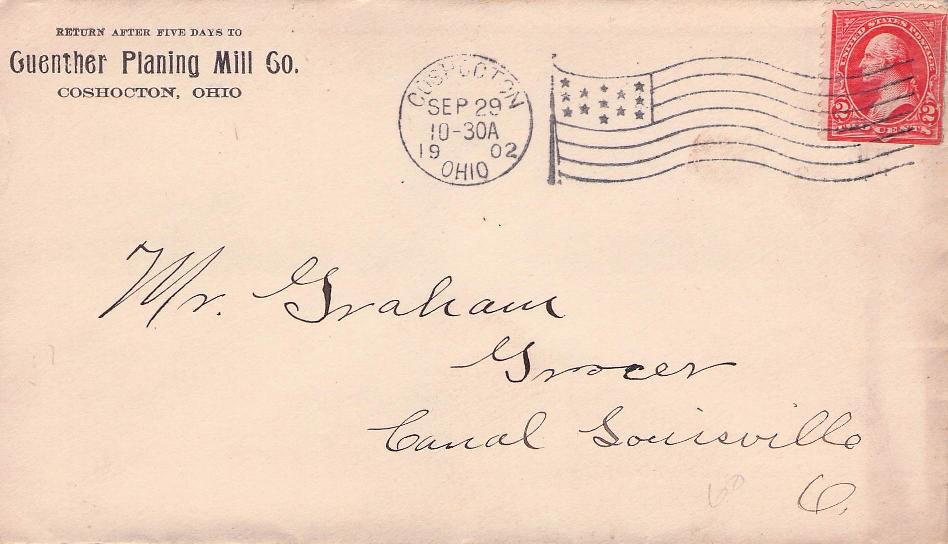 RETURN AFTER FIVE DAYS TO
Guenther Planing Mill Co.
COSHOCTON, OHIO
COSHOCTON
SEP 29
10-30A
19 02
OHIO
UNITED STATES POSTAGE
2 CENTS 2
Mr. Graham
Grocer
Canal Louisville
O.
60